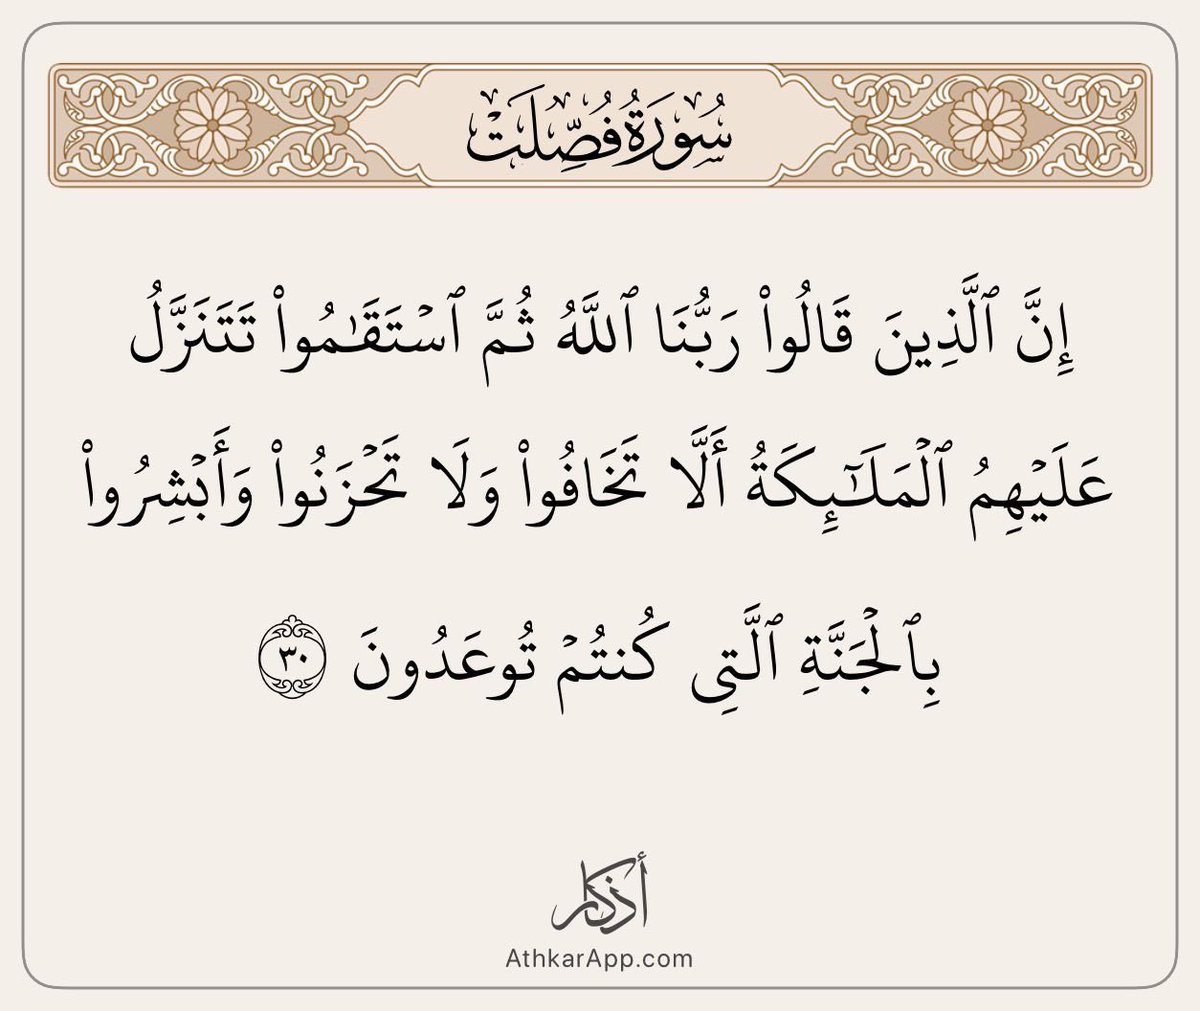 سُورَةُ فُصِّلَتْ
إِنَّ ٱلَّذِينَ قَالُوا۟ رَبُّنَا ٱللَّهُ ثُمَّ ٱسْتَقَـٰمُوا۟ تَتَنَزَّلُ
عَلَيْهِمُ ٱلْمَلَـٰٓئِكَةُ أَلَّا تَخَافُوا۟ وَلَا تَحْزَنُوا۟ وَأَبْشِرُوا۟
بِٱلْجَنَّةِ ٱلَّتِى كُنتُمْ تُوعَدُونَ ٣٠
أذكار
AthkarApp.com